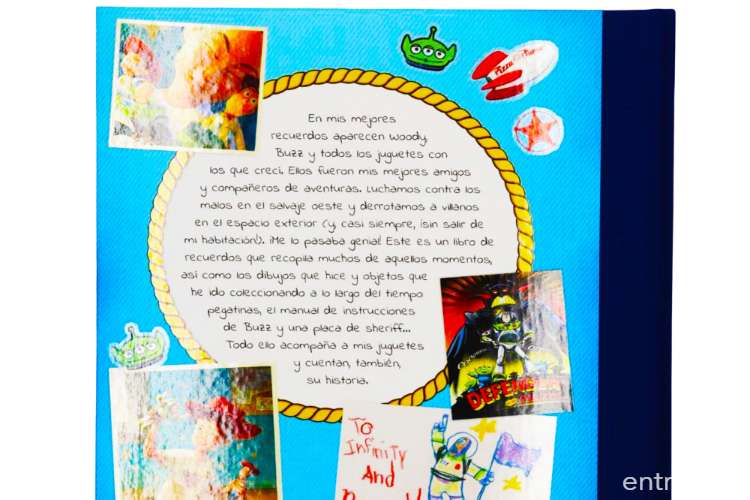 Pizza Planet
En mis mejores
recuerdos aparecen Woody,
Buzz y todos los juguetes con
los que crecí. Ellos fueron mis mejores amigos
y compañeros de aventuras. Luchamos contra los
malos en el salvaje oeste y derrotamos a villanos
en el espacio exterior (y, casi siempre, ¡sin salir de
mi habitación!). ¡Me lo pasaba genial! Este es un libro de
recuerdos que recopila muchos de aquellos momentos,
así como los dibujos que hice y objetos que
he ido coleccionando a lo largo del tiempo
pegatinas, el manual de instrucciones
de Buzz y una placa de sheriff...
Todo ello acompaña a mis juguetes
y cuentan, también,
su historia.
To
Infinity
And
entr